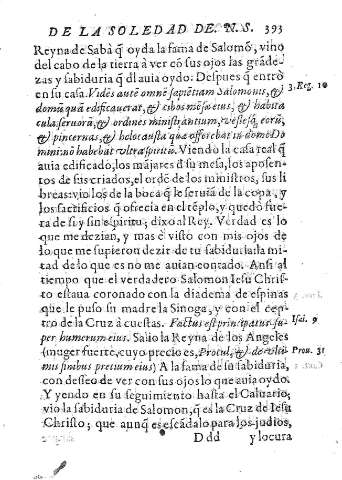 DE LA SOLEDAD DE N.S. 393
Reyna de Sabà q̃ oyda la fama de Salomõ, vino
del cabo de la tierra à ver cõ sus ojos las grãde-
zas y sabiduria q̃ dl auia oydo: Despues q̃ entrò
en su casa. Vidẽs autẽ omnẽ sapiẽtiam Salomonis, &
domũ quã edificauerat, & cibos mẽsæ eius, & habita
cula seruorũ, & ordines ministrantium, vestesq; eorũ,
& pincernas, & holocausta quæ offerebat in domo Do
mini nõ habebat vltra spiritũ. Viendo la casa real q̃
auia edificado, los mãjares d̃ su mesa, los aposen-
tos de sus criados, el ordẽ de los ministros, sus li
breas: vio los de la boca q̃ le seruiã de la copa, y
los sacrificios q̃ ofrecia en el tẽplo, y quedò fue
ra de si y sin espiritu; dixo al Rey. Verdad es lo
que me dezian, y mas é visto con mis ojos de
lo que me supieron dezir de tu sabiduria: la mi-
tad de lo que es no me auian contado. Ansi al
tiempo que el verdadero Salomon Iesu Chris-
to estaua coronado con la diadema de espinas
que le puso su madre la Sinoga, y con el cep-
tro de la Cruz à cuestas. Factus est principatus su-
per humerum eius. Salio la Reyna de los Angeles
(muger fuerte, cuyo precio es, Procul, & de vlti-
mis finibus precium eius) A la fama de su sabiduria,
con desseo de ver con sus ojos lo que auia oydo.
Y yendo en su seguimiento hasta el Caluario,
vio la sabiduria de Salomon, q̃ es la Cruz de Iesu
Christo; que aunq̃ es escãdalo para los judios,
D dd y locura
3. Reg. 10
Isai. 9
Prou. 31